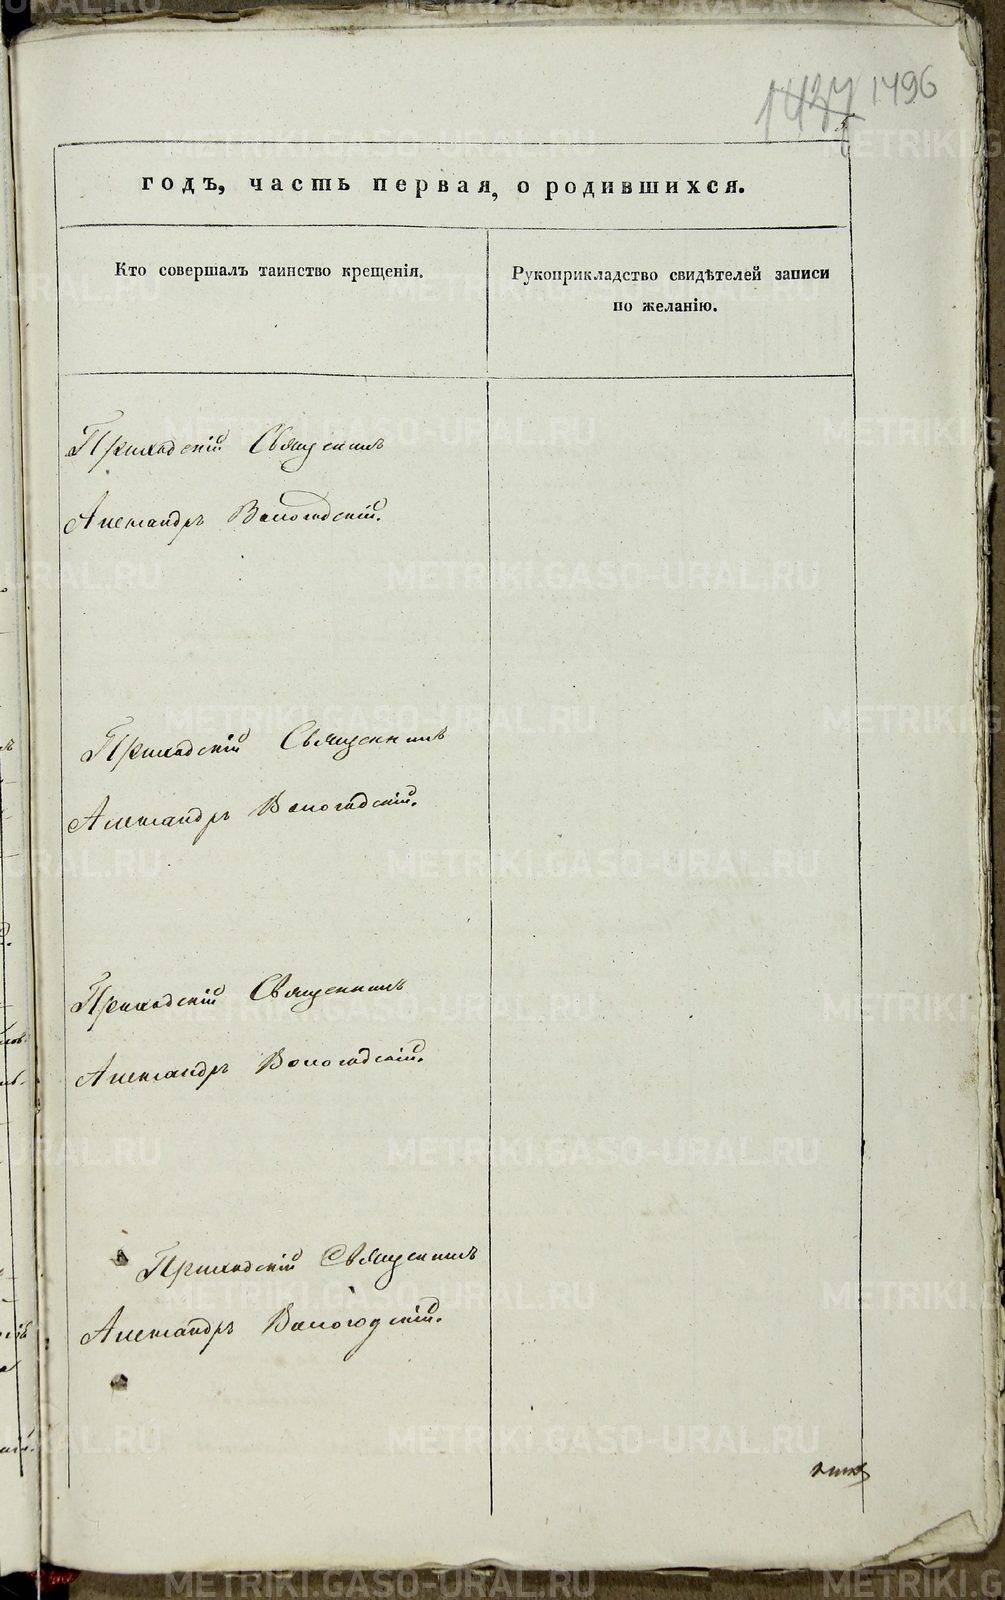 1437 1496
годъ, часть первая, о родившихся.
Кто совершалъ таинство крещенія.
Рукоприкладство свидѣтелей записи
по желанію.
Приходскій Священникъ
Александръ Вологодскій.
Приходскій Священникъ
Александръ Вологодскій.
Приходскій Священникъ
Александръ Вологодскій.
Приходскій Священникъ
Александръ Вологодскій.
METRIKI.GASO-URAL.RU